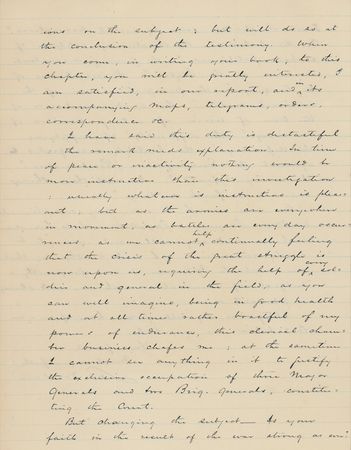 ions on the subject; but will do so at
the conclusion of the testimony. When
you come, in writing your book, to this
chapter, you will be greatly interested, I
am satisfied, in our report, and in its
accompanying maps, telegrams, orders,
correspondence &c.
I have said this duty is distasteful
the remark needs explanation. In time
of peace or inactivity nothing would be
more instructive than this investigation
; usually whatever is instructive is pleas-
ant; but as the armies are everywhere
in movement, as battles are every day occur-
rences, as we cannot help continually feeling
that the crisis of the great struggle is
now upon us, requiring the help of every sol-
dier and general in the field, as you
can well imagine, being in good health
and at all times rather boastful of my
powers of endurance, this clerical cham-
ber business chafes me; at the same time
I cannot see anything in it to justify
the exclusive occupation of three Major
Generals and two Brig. Generals, constitu-
ting the Court.
But changing the subject— Is your
faith in the result of the war strong as ever?